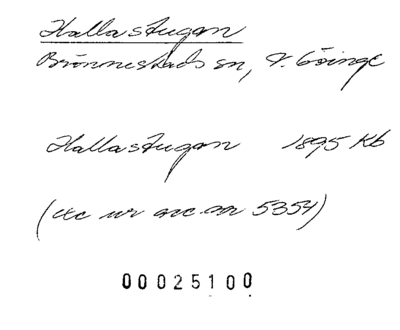 Hallastugan
Brönnestads sn, V. Göinge
Hallastugan 1895 Kb
(etc ur acc.nr 5354)
00025100